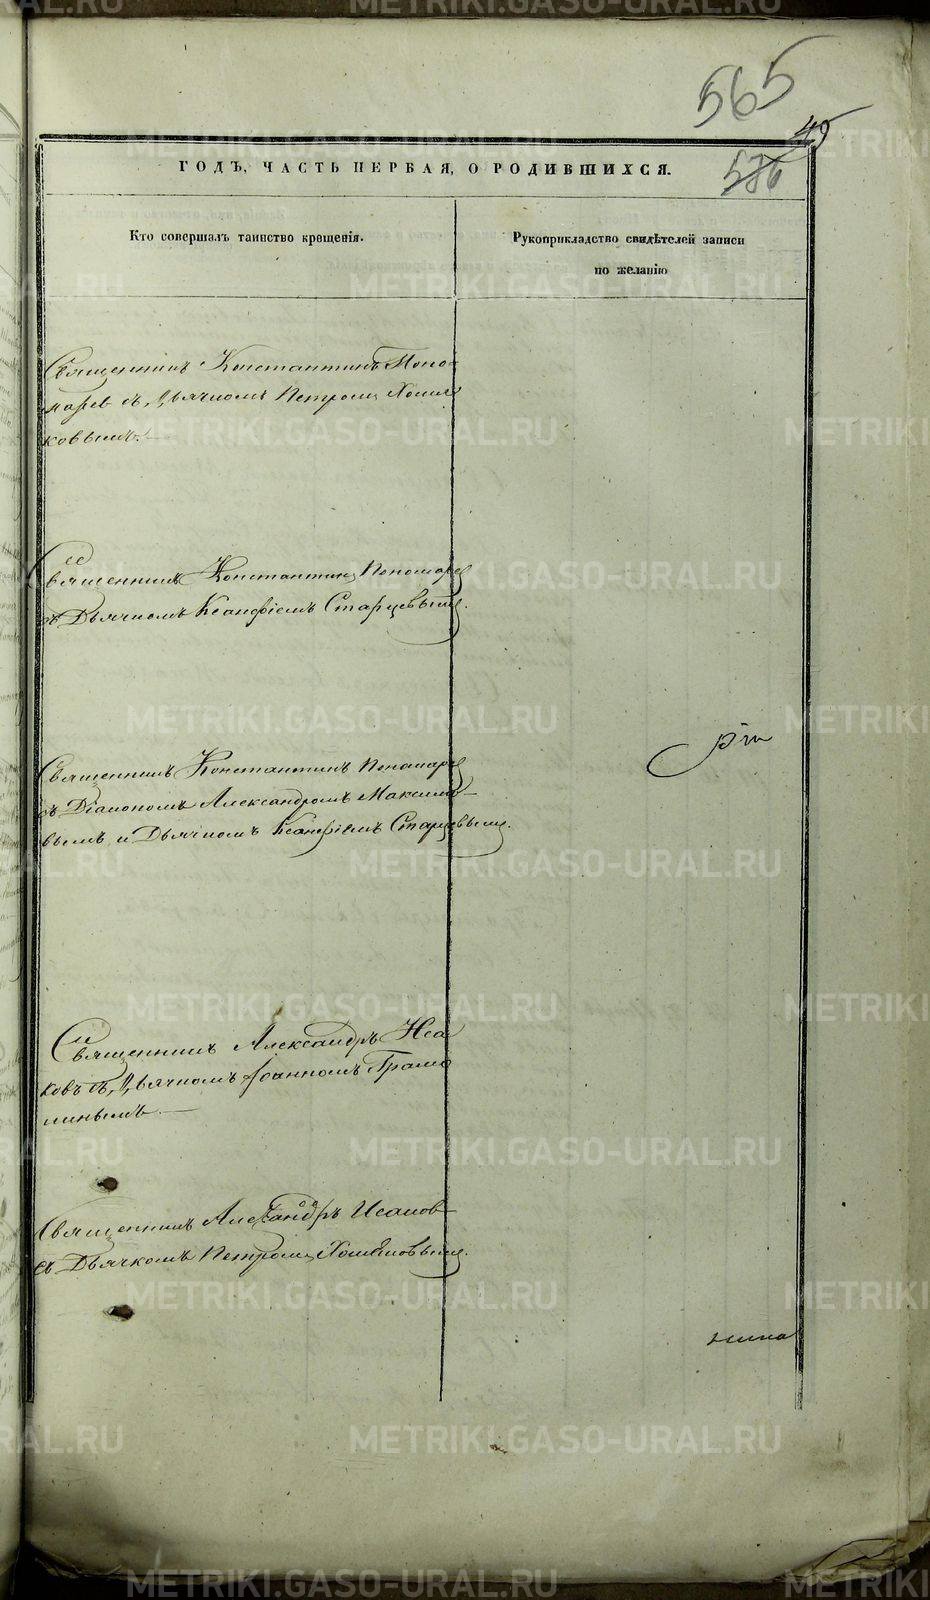 565
49
576
ГОДЪ, ЧАСТЬ ПЕРВАЯ, О РОДИВШИХСЯ.
Кто совершалъ таинство крещенія.
Рукоприкладство свидѣтелей записи
по желанію
Священникъ Константинъ Поно-
марев съ Дьячкомъ Петромъ Хомя
ковымъ.
Священникъ Константинъ Пономарев
съ Дьячкомъ Ксанфіемъ Старцевымъ.
Священникъ Константинъ Пономарев
съ Діакономъ Александромъ Макси
вымъ и Дьячкомъ Ксанфіемъ Старцевымъ.
Священникъ Александръ Иса
ковъ съ Дьячкомъ Іоанномъ Грамо
линымъ.
Священникъ Александръ Исаков
съ Дьячкомъ Петромъ Хомяковымъ.
METRIKI.GASO-URAL.RU